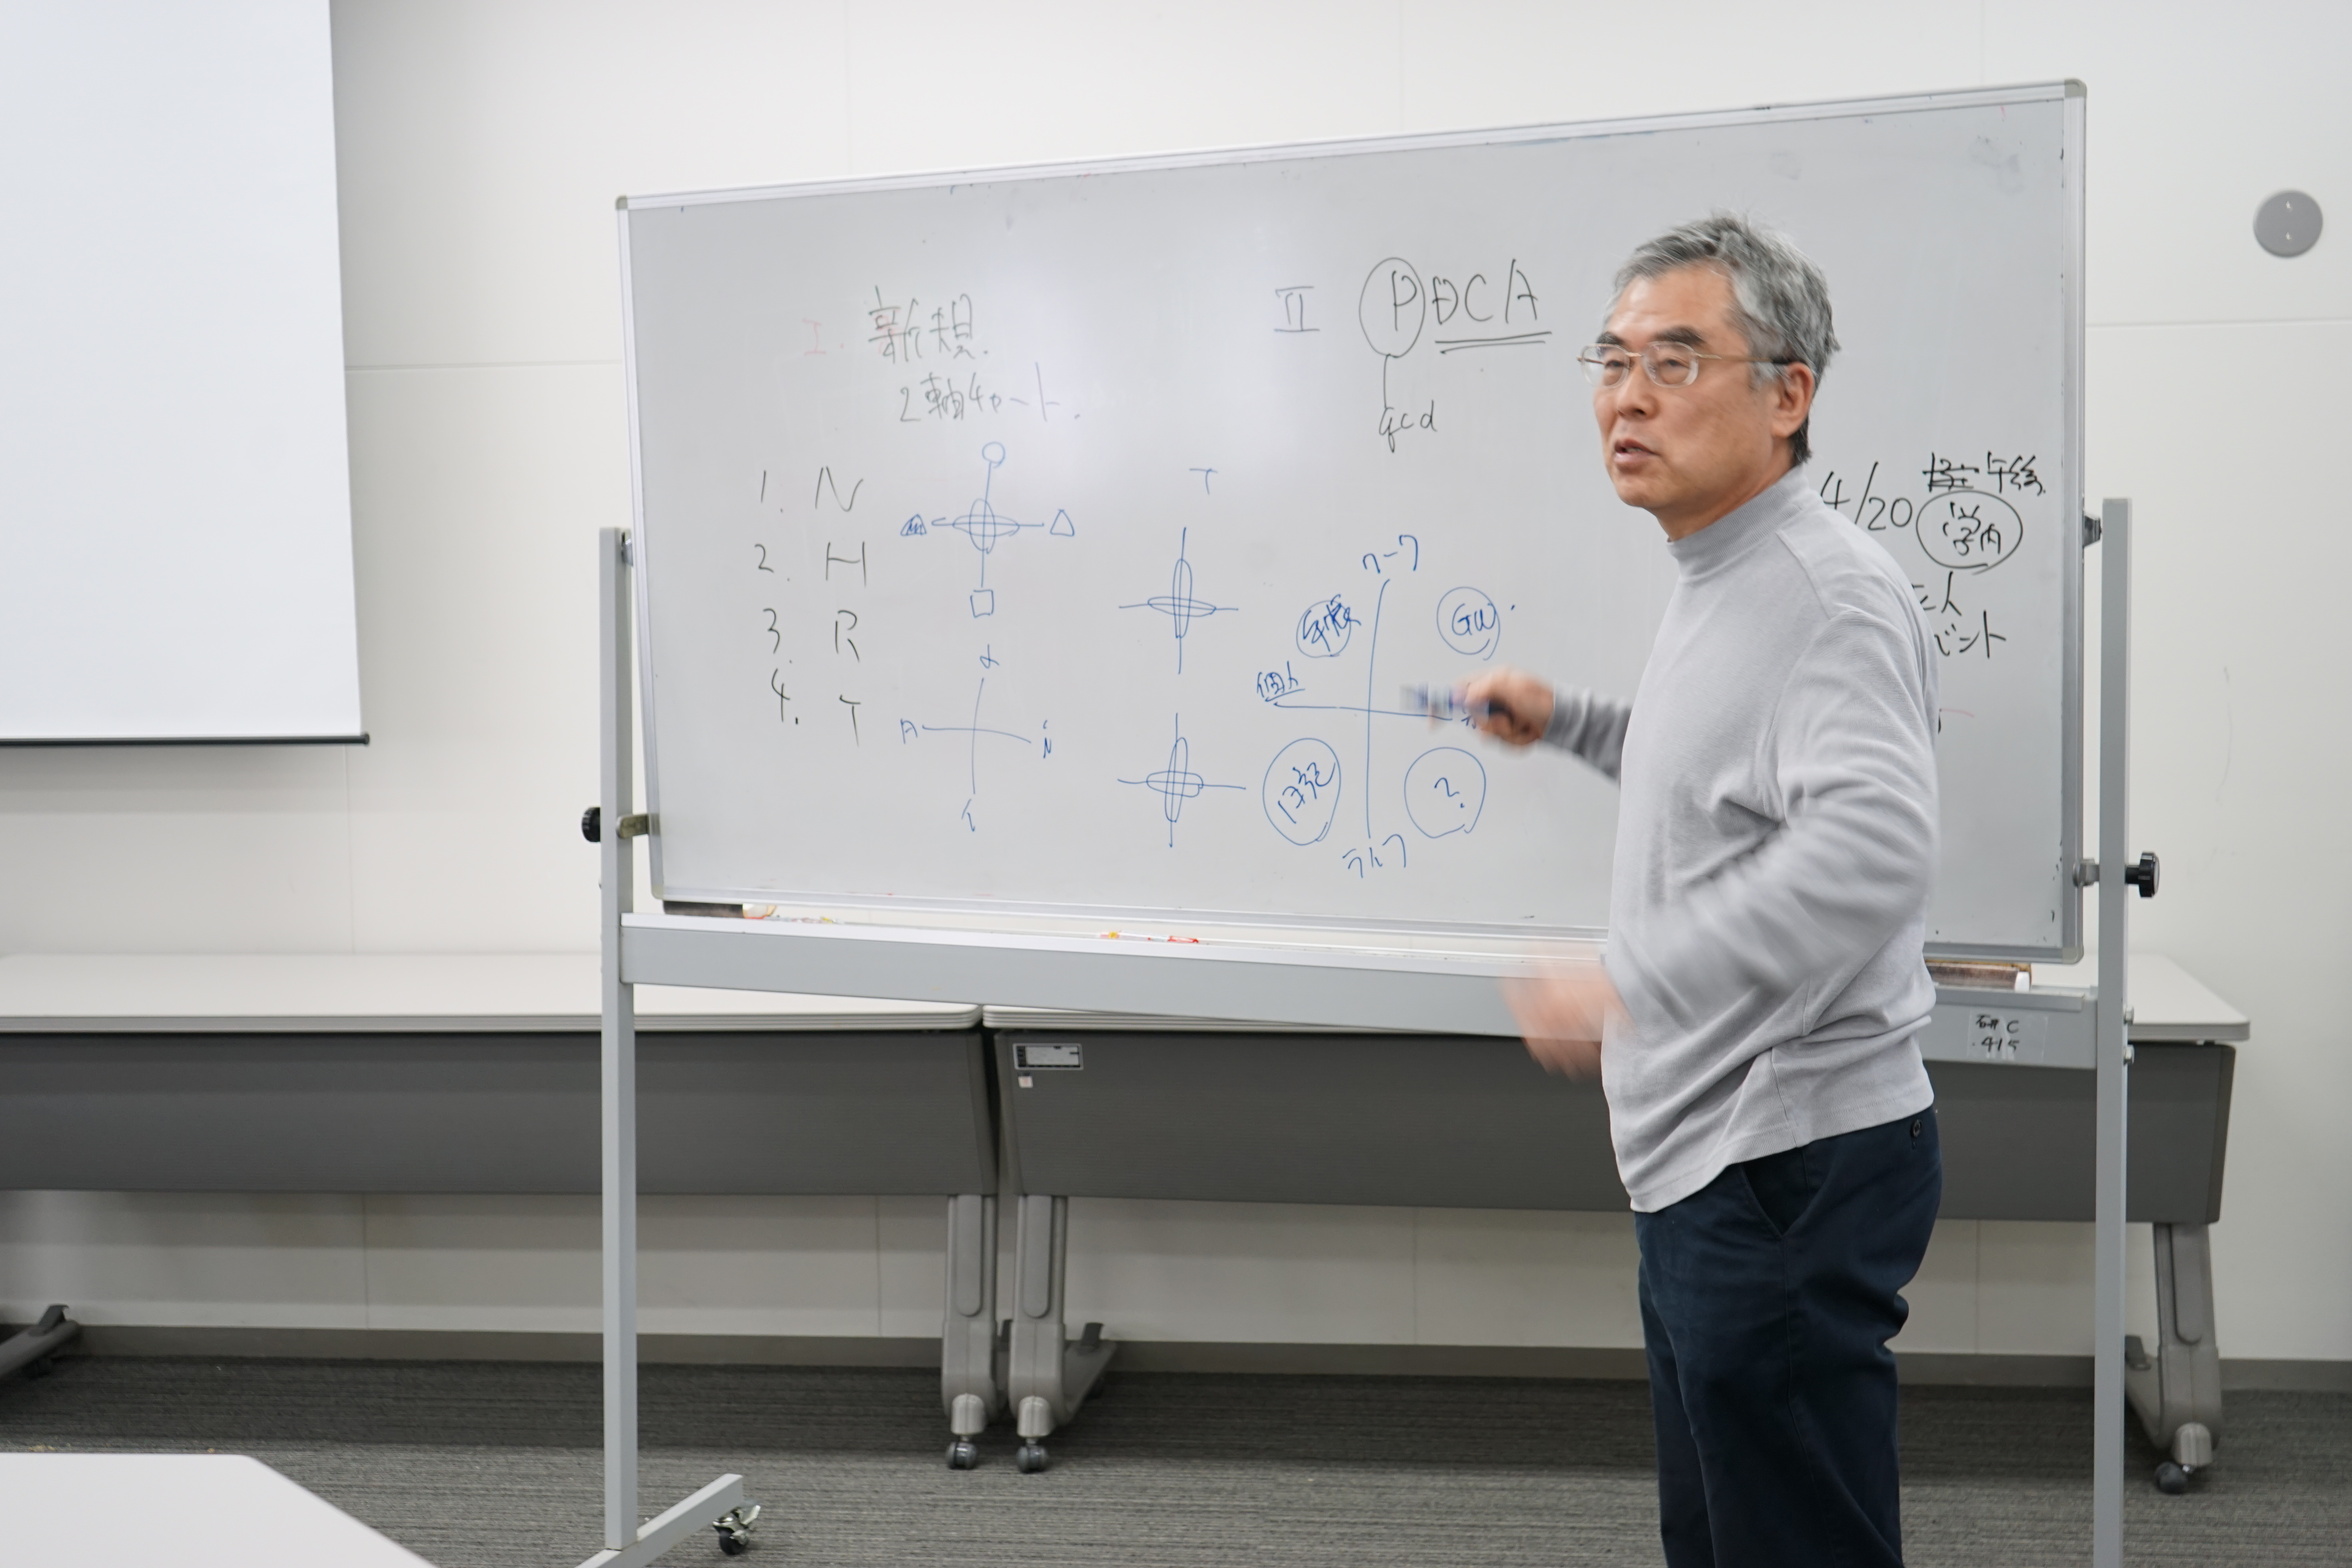 I. 新規.
2軸チャート.
1. N
2. H
3. R
4. T
α
A
T
II PDCA
gcd
ワーク
GW.
個人
日記
?
ライフ
4/20 午後
学内
ベント
研C
415